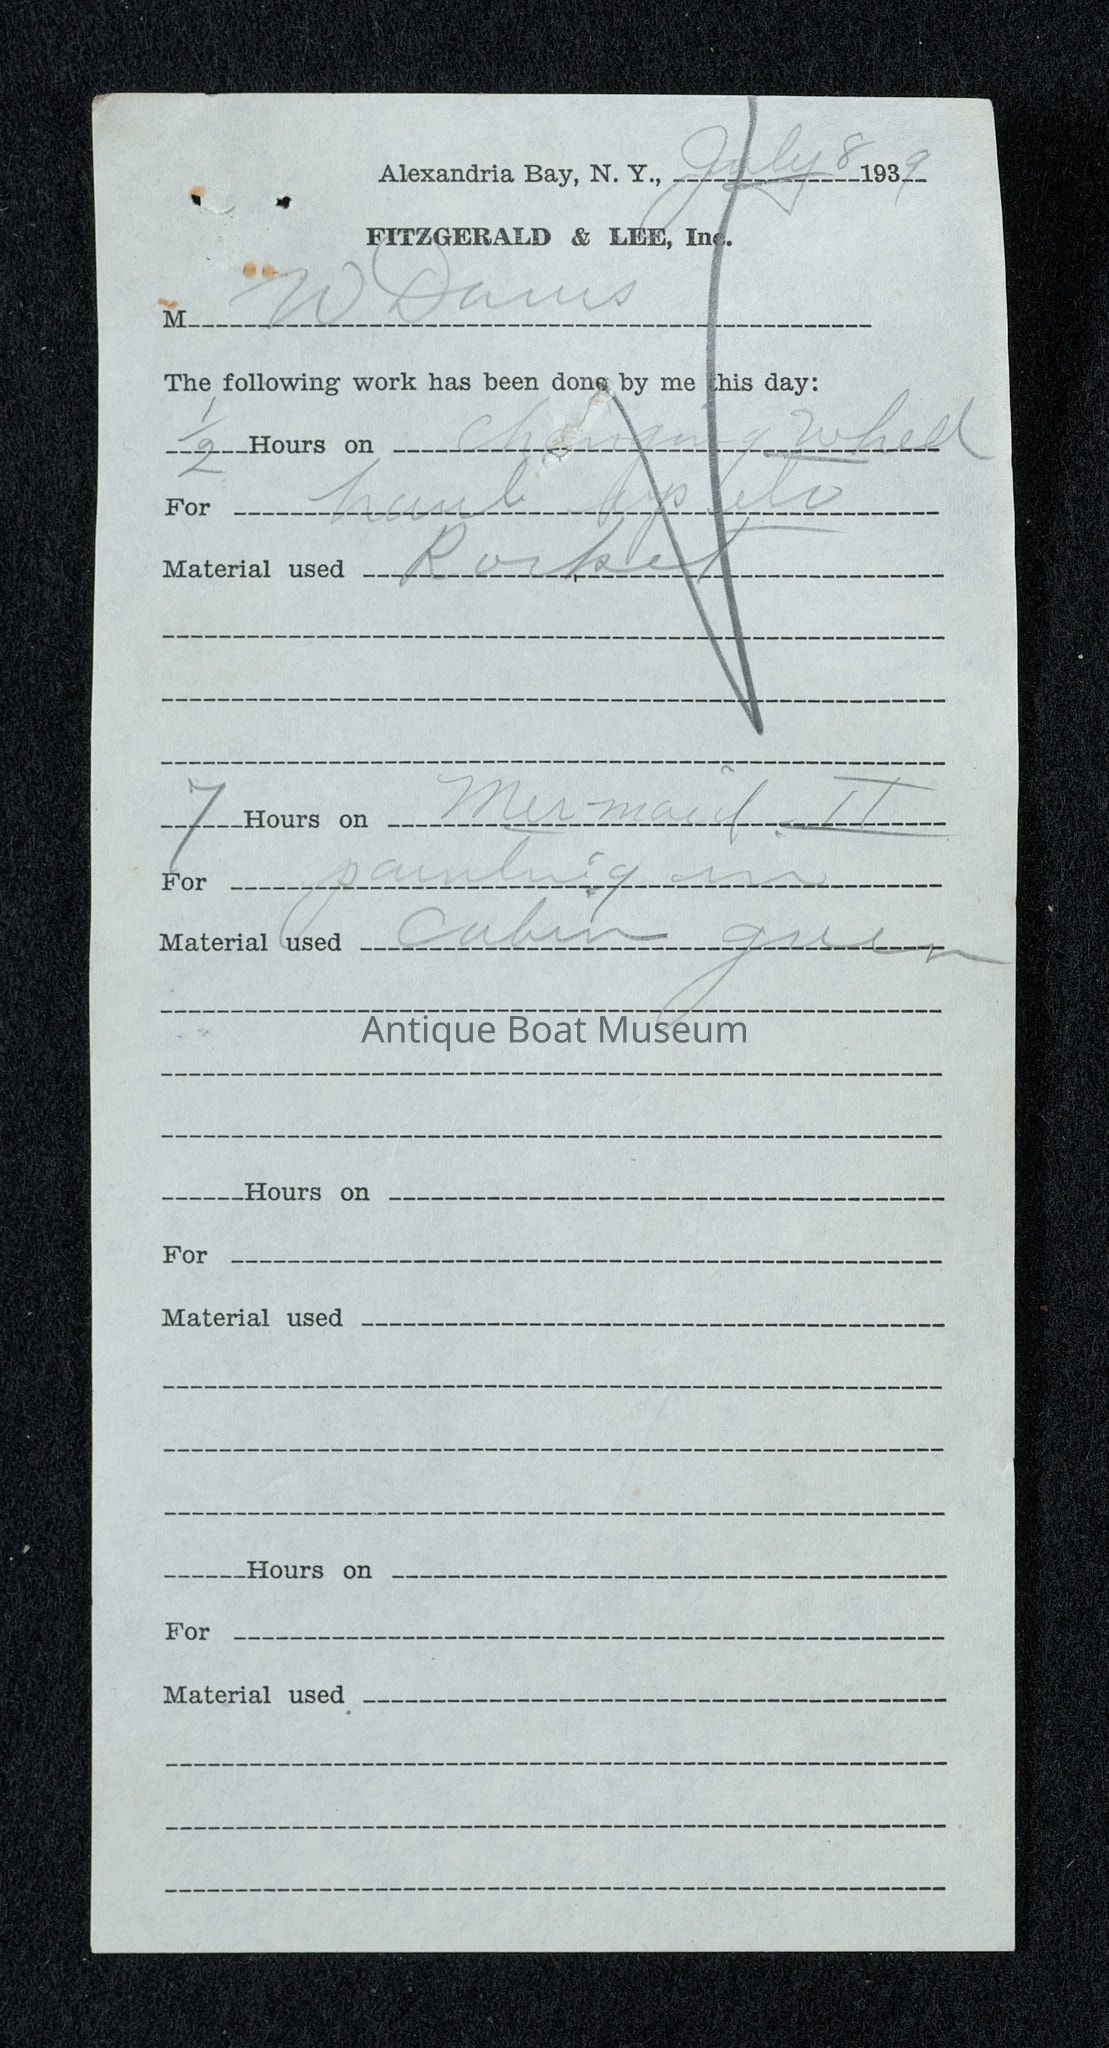 Alexandria Bay, N. Y., July 8 1939
FITZGERALD & LEE, Inc.
M W Davis
The following work has been done by me this day:
1/2 Hours on changing wheel
For haul up etc
Material used Rocket
7 Hours on Mermaid II
For painting in
Material used Cabin green
Antique Boat Museum
Hours on
For
Material used
Hours on
For
Material used